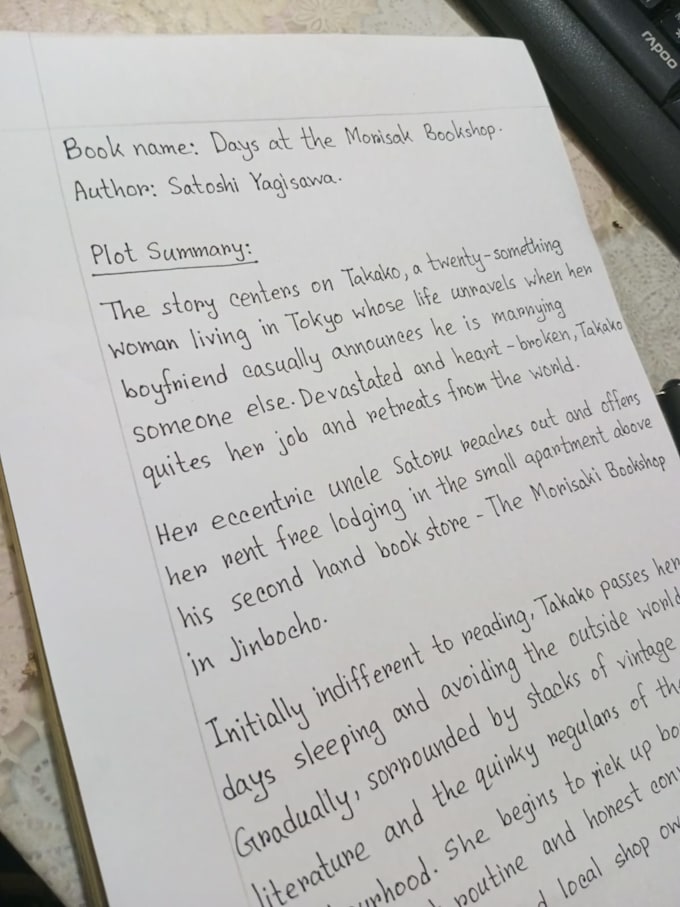 rapoo
Book name: Days at the Morisak Bookshop.
Author: Satoshi Yagisawa.
Plot Summary:
The story centers on Takako, a twenty-something
woman living in Tokyo whose life unravels when her
boyfriend casually announces he is marrying
someone else. Devastated and heart-broken, Takako
quites her job and retreats from the world.
Her eccentric uncle Satoru reaches out and offers
her rent free lodging in the small apartment above
his second hand book store - The Morisaki Bookshop
in Jinbocho.
Initially indifferent to reading, Takako passes her
days sleeping and avoiding the outside world
Gradually, sorrounded by stacks of vintage
literature and the quirky regulars of the
She begins to pick up
routine and honest
local shop